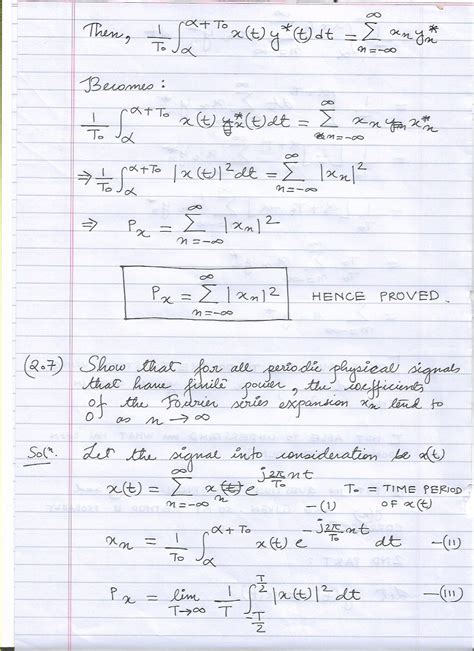 Then, 1/T₀ ∫_α^(α+T₀) x(t) y*(t) dt = Σ_(n=-∞)^∞ xₙ yₙ*
Becomes :
1/T₀ ∫_α^(α+T₀) x(t) x*(t) dt = Σ_(n=-∞)^∞ xₙ xₙ*
⇒ 1/T₀ ∫_α^(α+T₀) |x(t)|² dt = Σ_(n=-∞)^∞ |xₙ|²
⇒ Pₓ = Σ_(n=-∞)^∞ |xₙ|²
Pₓ = Σ_(n=-∞)^∞ |xₙ|² HENCE PROVED.
(2.7) Show that for all periodic physical signals
that have finite power, the coefficients
of the Fourier series expansion xₙ tend to
0 as n → ∞
Solⁿ. Let the signal into consideration be x(t)
x(t) = Σ_(n=-∞)^∞ xₙ e^(j2π/T₀ nt) T₀ = TIME PERIOD
—(I) OF x(t)
xₙ = 1/T₀ ∫_α^(α+T₀) x(t) e^(-j2π/T₀ nt) dt —(II)
Pₓ = lim_(T→∞) 1/T ∫_(-T/2)^(T/2) |x(t)|² dt —(III)